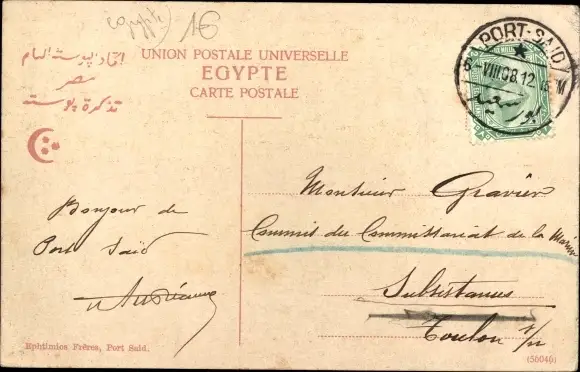 egypte
16
اتحاد البوستة العام
مصر
تذكرة بوستة
UNION POSTALE UNIVERSELLE
EGYPTE
CARTE POSTALE
PORT-SAID
VIII 08.12
بورسعيد
Monsieur Gravier
Commis du Commissariat de la Marine
Subsistances
Toulon s/m
Bonjour de
Port Saïd
Ephtimios Frères, Port Said.
(56046)